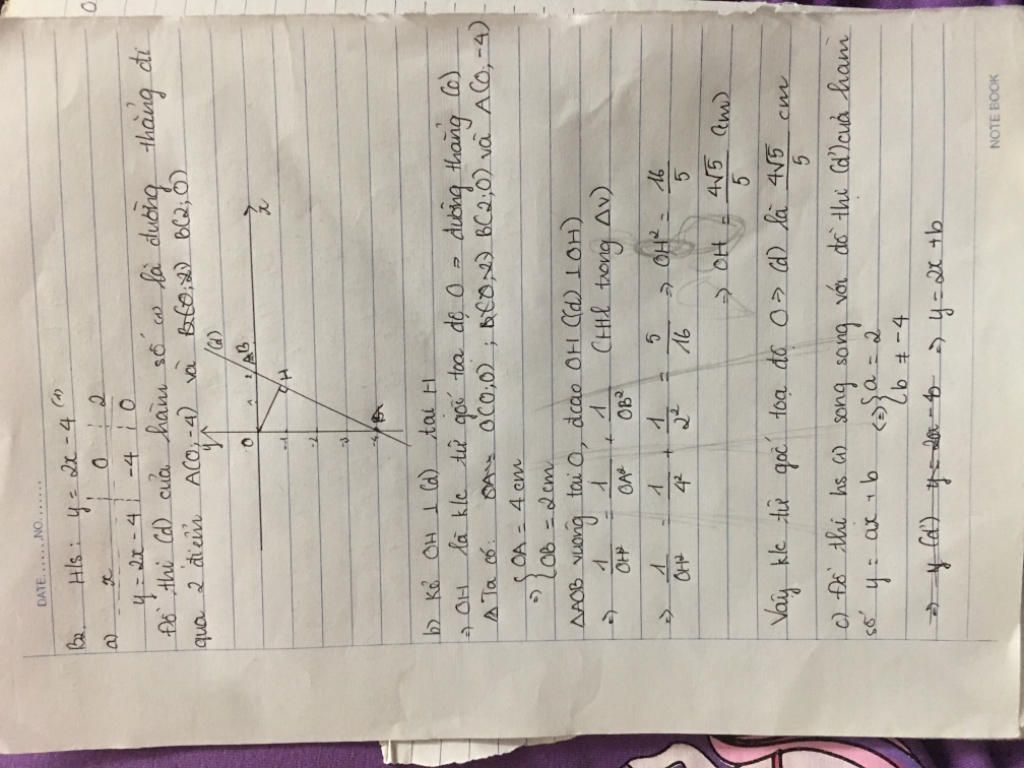 DATE.......NO.......
B2. Hs: y = 2x - 4 (1)
a) x 0 2
y = 2x - 4 -4 0
Đồ thị (d) của hàm số (1) là đường thẳng đi
qua 2 điểm A(0;-4) và B(2;0)
y
(d)
O
B
x
H
-1
-2
-3
-4
A
b) Kẻ OH ⊥ (d) tại H
=> OH là k/c từ gốc tọa độ O -> đường thẳng (d)
Ta có: O(0;0); B(2;0) và A(0;-4)
=> { OA = 4 cm
OB = 2 cm
ΔAOB vuông tại O, đ/cao OH ((d) ⊥ OH)
=> 1/OH² = 1/OA² + 1/OB² (HHL trong Δv)
=> 1/OH² = 1/4² + 1/2² = 5/16 => OH² = 16/5
=> OH = 4√5/5 (cm)
Vậy k/c từ gốc tọa độ O -> (d) là 4√5/5 cm
c) Đồ thị hs (1) song song với đồ thị (d') của hàm
số y = ax + b <=> { a = 2
b ≠ -4
=> y (d') y = 2a - b => y = 2x + b
NOTE BOOK